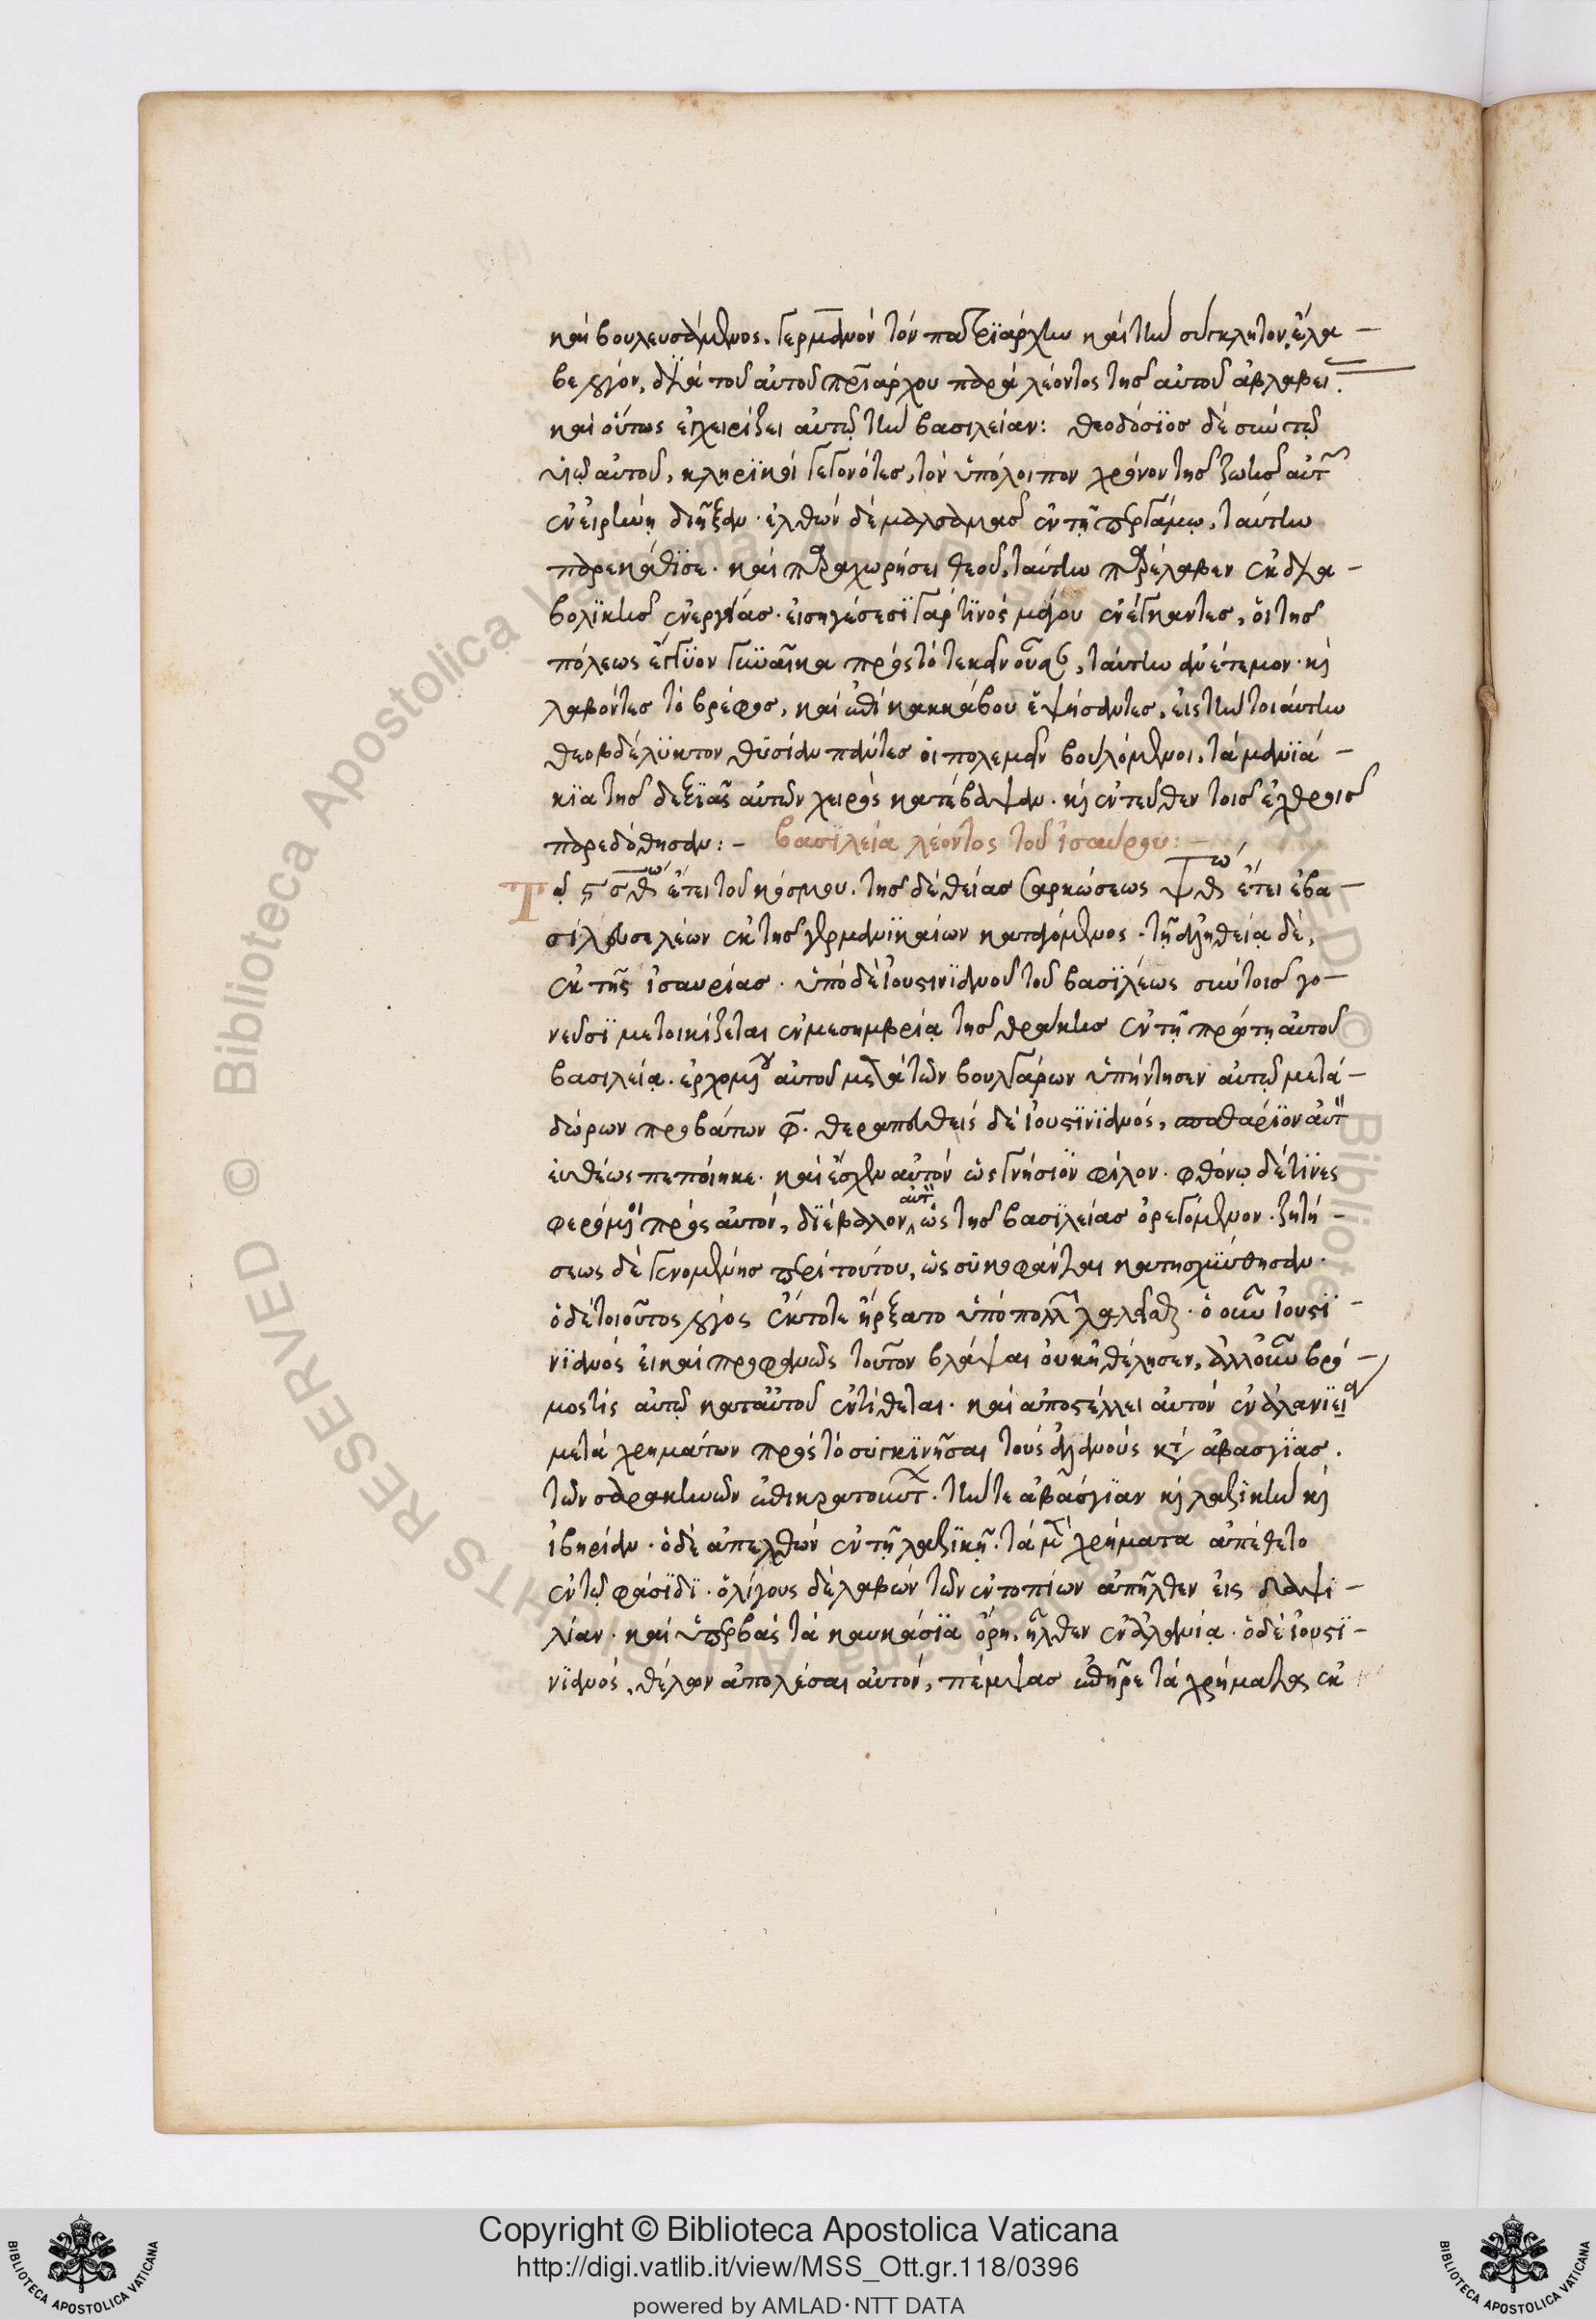 καὶ βουλευσάμενος, γερμανὸν τὸν πατριάρχην καὶ τὴν σύγκλητον, ἔλα-
βε λόγον, διὰ τοῦ αὐτοῦ πριάρχου παρὰ λέοντος τῆς αὐτοῦ ἀβλαβεί.
καὶ οὕτως ἐγχειρίζει αὐτῷ τὴν βασιλείαν: θεοδόσϊος δὲ σὺν τῷ
υἱῷ αὐτοῦ, κληρϊκοὶ γεγονότες, τὸν ὑπόλοιπον χρόνον τῆς ζωῆς αὐτ
ἐν εἰρήνῃ διῆξαν. ἐλθὼν δὲ μαλσαμας ἐν τῇ περγάμῳ, ταύτην
παρεκάθϊσε. καὶ παραχωρήσει θεοῦ, ταύτην παρέλαβεν ἐκ δια-
βολϊκῆς ἐνεργείας. εἰσηγέσεσϊ γάρ τϊνος μάγου ἐνέγκαντες, οἱ τῆς
πόλεως ἔγγϋον γυναῖκα πρὸς τὸ τεκεῖν οὖσαν, ταύτην ἀνέτεμον. κὶ
λαβόντες τὸ βρέφος, καὶ ἐπὶ κακκάβου ἑψήσαντες, εἰς τὴν τοιαύτην
θεοβδέλϋκτον θϋσίαν πάντες οἱ πολεμεῖν βουλόμενοι, τὰ μανϊά-
κϊα τῆς δεξϊᾶς αὐτῶν χειρὸς κατέβαψαν. κὶ ἐντεῦθεν τοῖς ἐχθροῖς
παρεδόθησαν:- βασϊλεία λέοντος τοῦ ἰσαύρου:-
Τῷ ϛσθ ω ἔτει τοῦ κόσμου. τῆς δὲ θείας σαρκώσεως ψθ ω ἔτει ἐβα-
σίλευσε λέων ἐκ τῆς γερμανϊκαίων καταγόμενος. τῇ ἀληθείᾳ δὲ,
ἐκ τῆς ἰσαυρίας. ὑπὸ δὲ ἰουστινιανοῦ τοῦ βασϊλέως σὺν τοῖς γο-
νεῦσϊ μετοικίζεται ἐν μεσημβρίᾳ τῆς θράκης ἐν τῇ πρώτῃ αὐτοῦ
βασιλείᾳ. ἐρχομένου αὐτοῦ μετὰ τῶν βουλγάρων ὑπήντησεν αὐτῷ μετὰ-
δώρων προβάτων φ. θεραπευθεὶς δὲ ἰουστϊνϊανὸς, σπαθάρϊον αὐτ
εὐθέως πεποίηκε. καὶ ἔσχεν αὐτὸν ὡς γνήσϊον φίλον. φθόνῳ δὲ τϊνες
φερόμενοι πρὸς αὐτὸν, δϊέβαλον αὐτ ὡς τῆς βασϊλείας ὀρεγόμενον. ζητή-
σεως δὲ γενομένης περὶ τούτου, ὡς σϋκοφάνται κατησχϋνθησαν.
ὁ δὲ τοιοῦτος λόγος ἔκτοτε ἤρξατο ὑπὸ πολλ λαλεῖσθαι. ὁ οὖν ἰουστϊ-
νϊανὸς εἰ καὶ προφανῶς τοῦτον βλάψαι οὐκ ἠθέλησεν, ἀλλ' οὖν βρό-
μος τὶς αὐτῷ κατ' αὐτοῦ ἐντίθεται. καὶ ἀποστέλλει αὐτὸν ἐν ἀλανϊεια
μετὰ χρημάτων πρὸς τὸ συγκϊνῆσαι τοὺς ἀλανοὺς κτ ἀβασγϊας.
τῶν σαρακηνῶν ἐπικρατούντ. τήν τε ἀβασγίαν κὶ λαζϊκὴν κὶ
ἰβηρίαν. ὁ δὲ ἀπελθὼν ἐν τῇ λαζϊκῇ. τὰ μ χρήματα ἀπέθετο
ἐν τῷ φάσϊδϊ. ὀλίγους δὲ λαβὼν τῶν ἐντοπίων ἀπῆλθεν εἰς ἀαψι-
λίαν. καὶ ὑπερβὰς τὰ καυκάσϊα ὄρη, ἦλθεν ἐν ἀλανίᾳ. ὁ δὲ ἰουστϊ-
νϊανὸς, θέλων ἀπολέσαι αὐτὸν, πέμψας ἐπῆρε τὰ χρήματα ἐκ
Copyright © Biblioteca Apostolica Vaticana
http://digi.vatlib.it/view/MSS_Ott.gr.118/0396
powered by AMLAD·NTT DATA
BIBLIOTECA APOSTOLICA VATICANA
BIBLIOTECA APOSTOLICA VATICANA